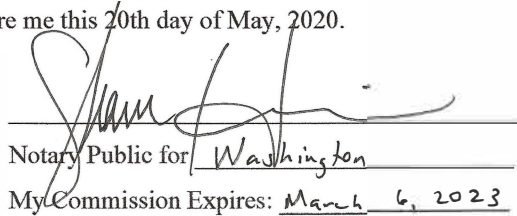 re me this 20th day of May, 2020.
Notary Public for Washington
My Commission Expires: March 6, 2023